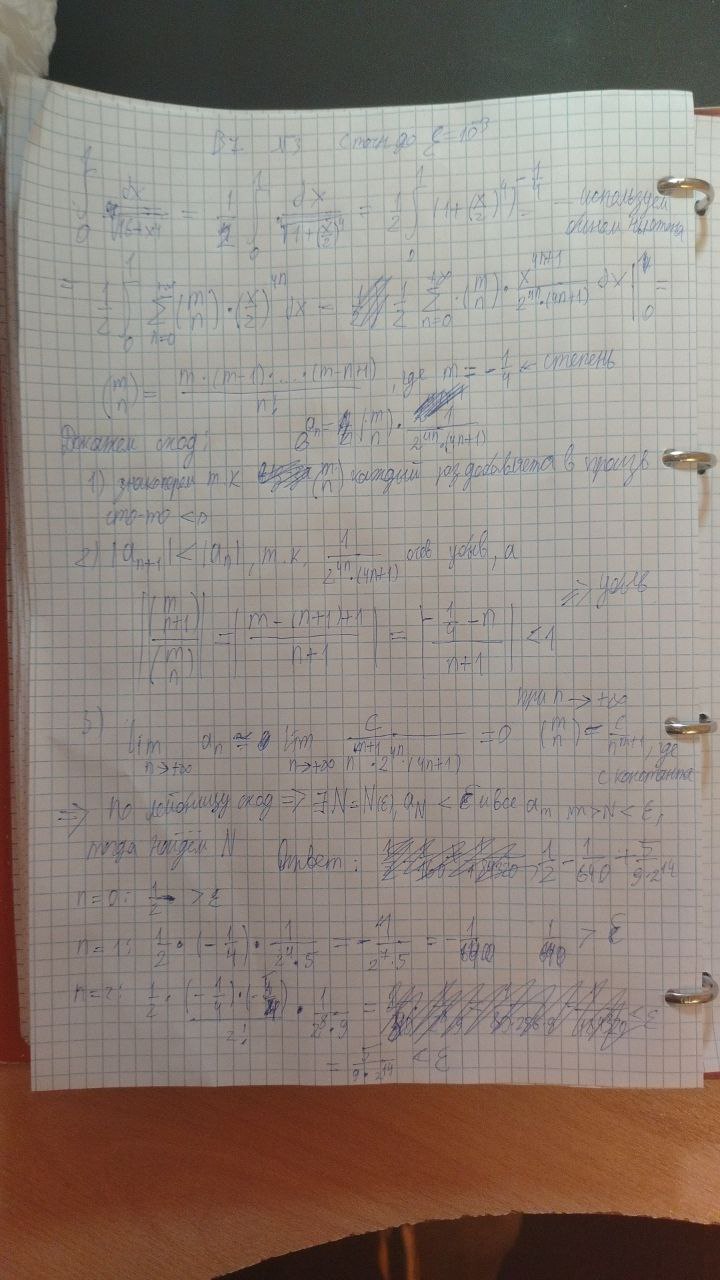 В7 №3 с точн до ε = 10⁻³
∫₀¹ dx/⁴√(16+x⁴) = 1/2 ∫₀¹ dx/⁴√(1+(x/2)⁴) = 1/2 ∫₀¹ (1+(x/2)⁴)^(-1/4) = используем
бином Ньютона
= 1/2 ∫₀¹ Σ_{n=0}^{+∞} (m n)·(x/2)^{4n} dx = 1/2 Σ_{n=0}^{+∞} (m n)· x^{4n+1}/(2^{4n}·(4n+1)) dx |₀¹ =
(m n) = m·(m-1)·...·(m-n+1)/n!, где m = -1/4 ← степень
Докажем сход: aₙ = (m n)· 1/(2^{4n}·(4n+1))
1) знакочеред т.к (m n) каждый раз добавляется в произв
что-то < 0
2) |aₙ₊₁| < |aₙ|, т.к. 1/(2^{4n}·(4n+1)) убыв, а
|(m n+1)/(m n)| = |(m-(n+1)+1)/(n+1)| = |(-1/4 - n)/(n+1)| < 1 ⇒ убыв
при n→+∞
3) lim_{n→+∞} aₙ = lim_{n→+∞} C/(n^{m+1}·2^{4n}·(4n+1)) = 0 (m n) ~ C/n^{m+1}, где
C константа
⇒ по Лейбницу сход ⇒ ∃N=N(ε), a_N < ε и все a_m m>N < ε,
тогда найдём N Ответ: 1/2 - 1/640 + 5/(9·2¹⁴)
n=0: 1/2 > ε
n=1: 1/2·(-1/4)·1/(2⁴·5) = -1/(2⁷·5) = -1/640 1/640 > ε
n=2: 1/2·(-1/4)·(-5/4)/2!·1/(2⁸·9) =
= 5/(9·2¹⁴) < ε